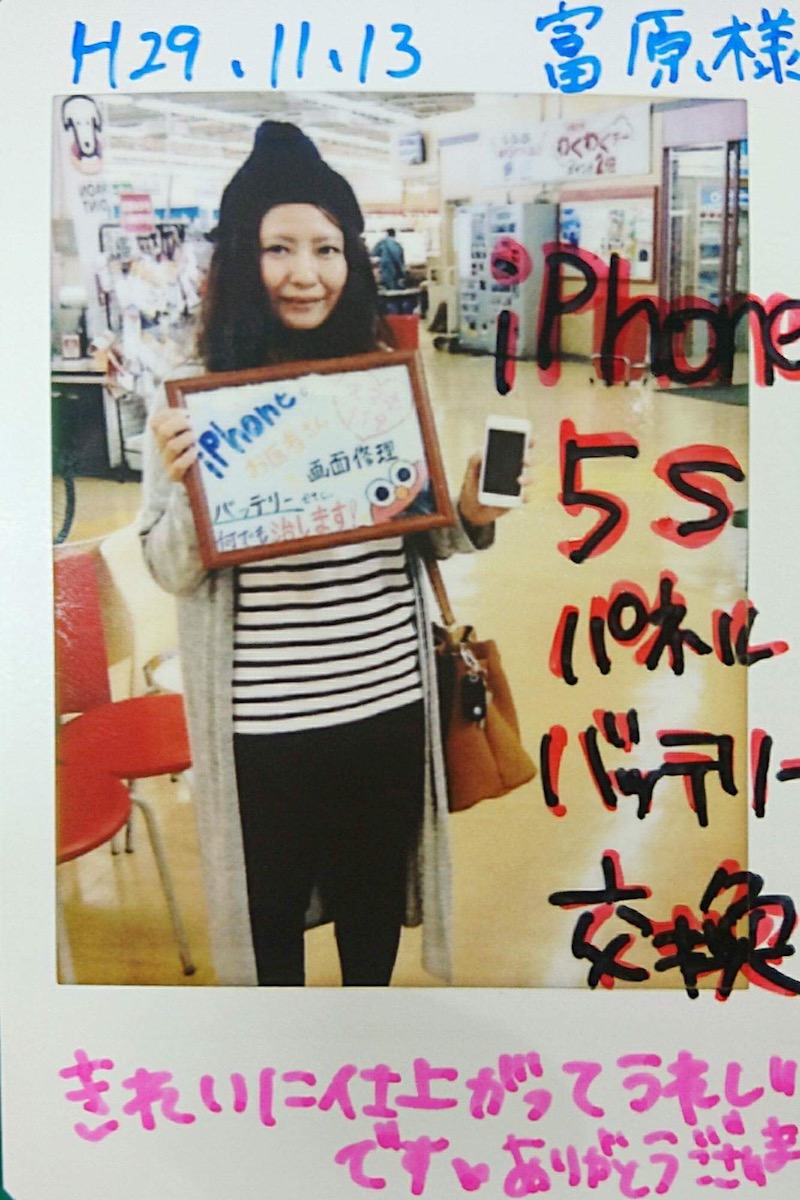 H29.11.13 富原様
わくわくデー
iPhone
お医者さん
画面修理
バッテリー etc.
何でも治します!
iPhone
5s
パネル
バッテリー
交換
きれいに仕上がってうれしい
です♥ありがとうございま